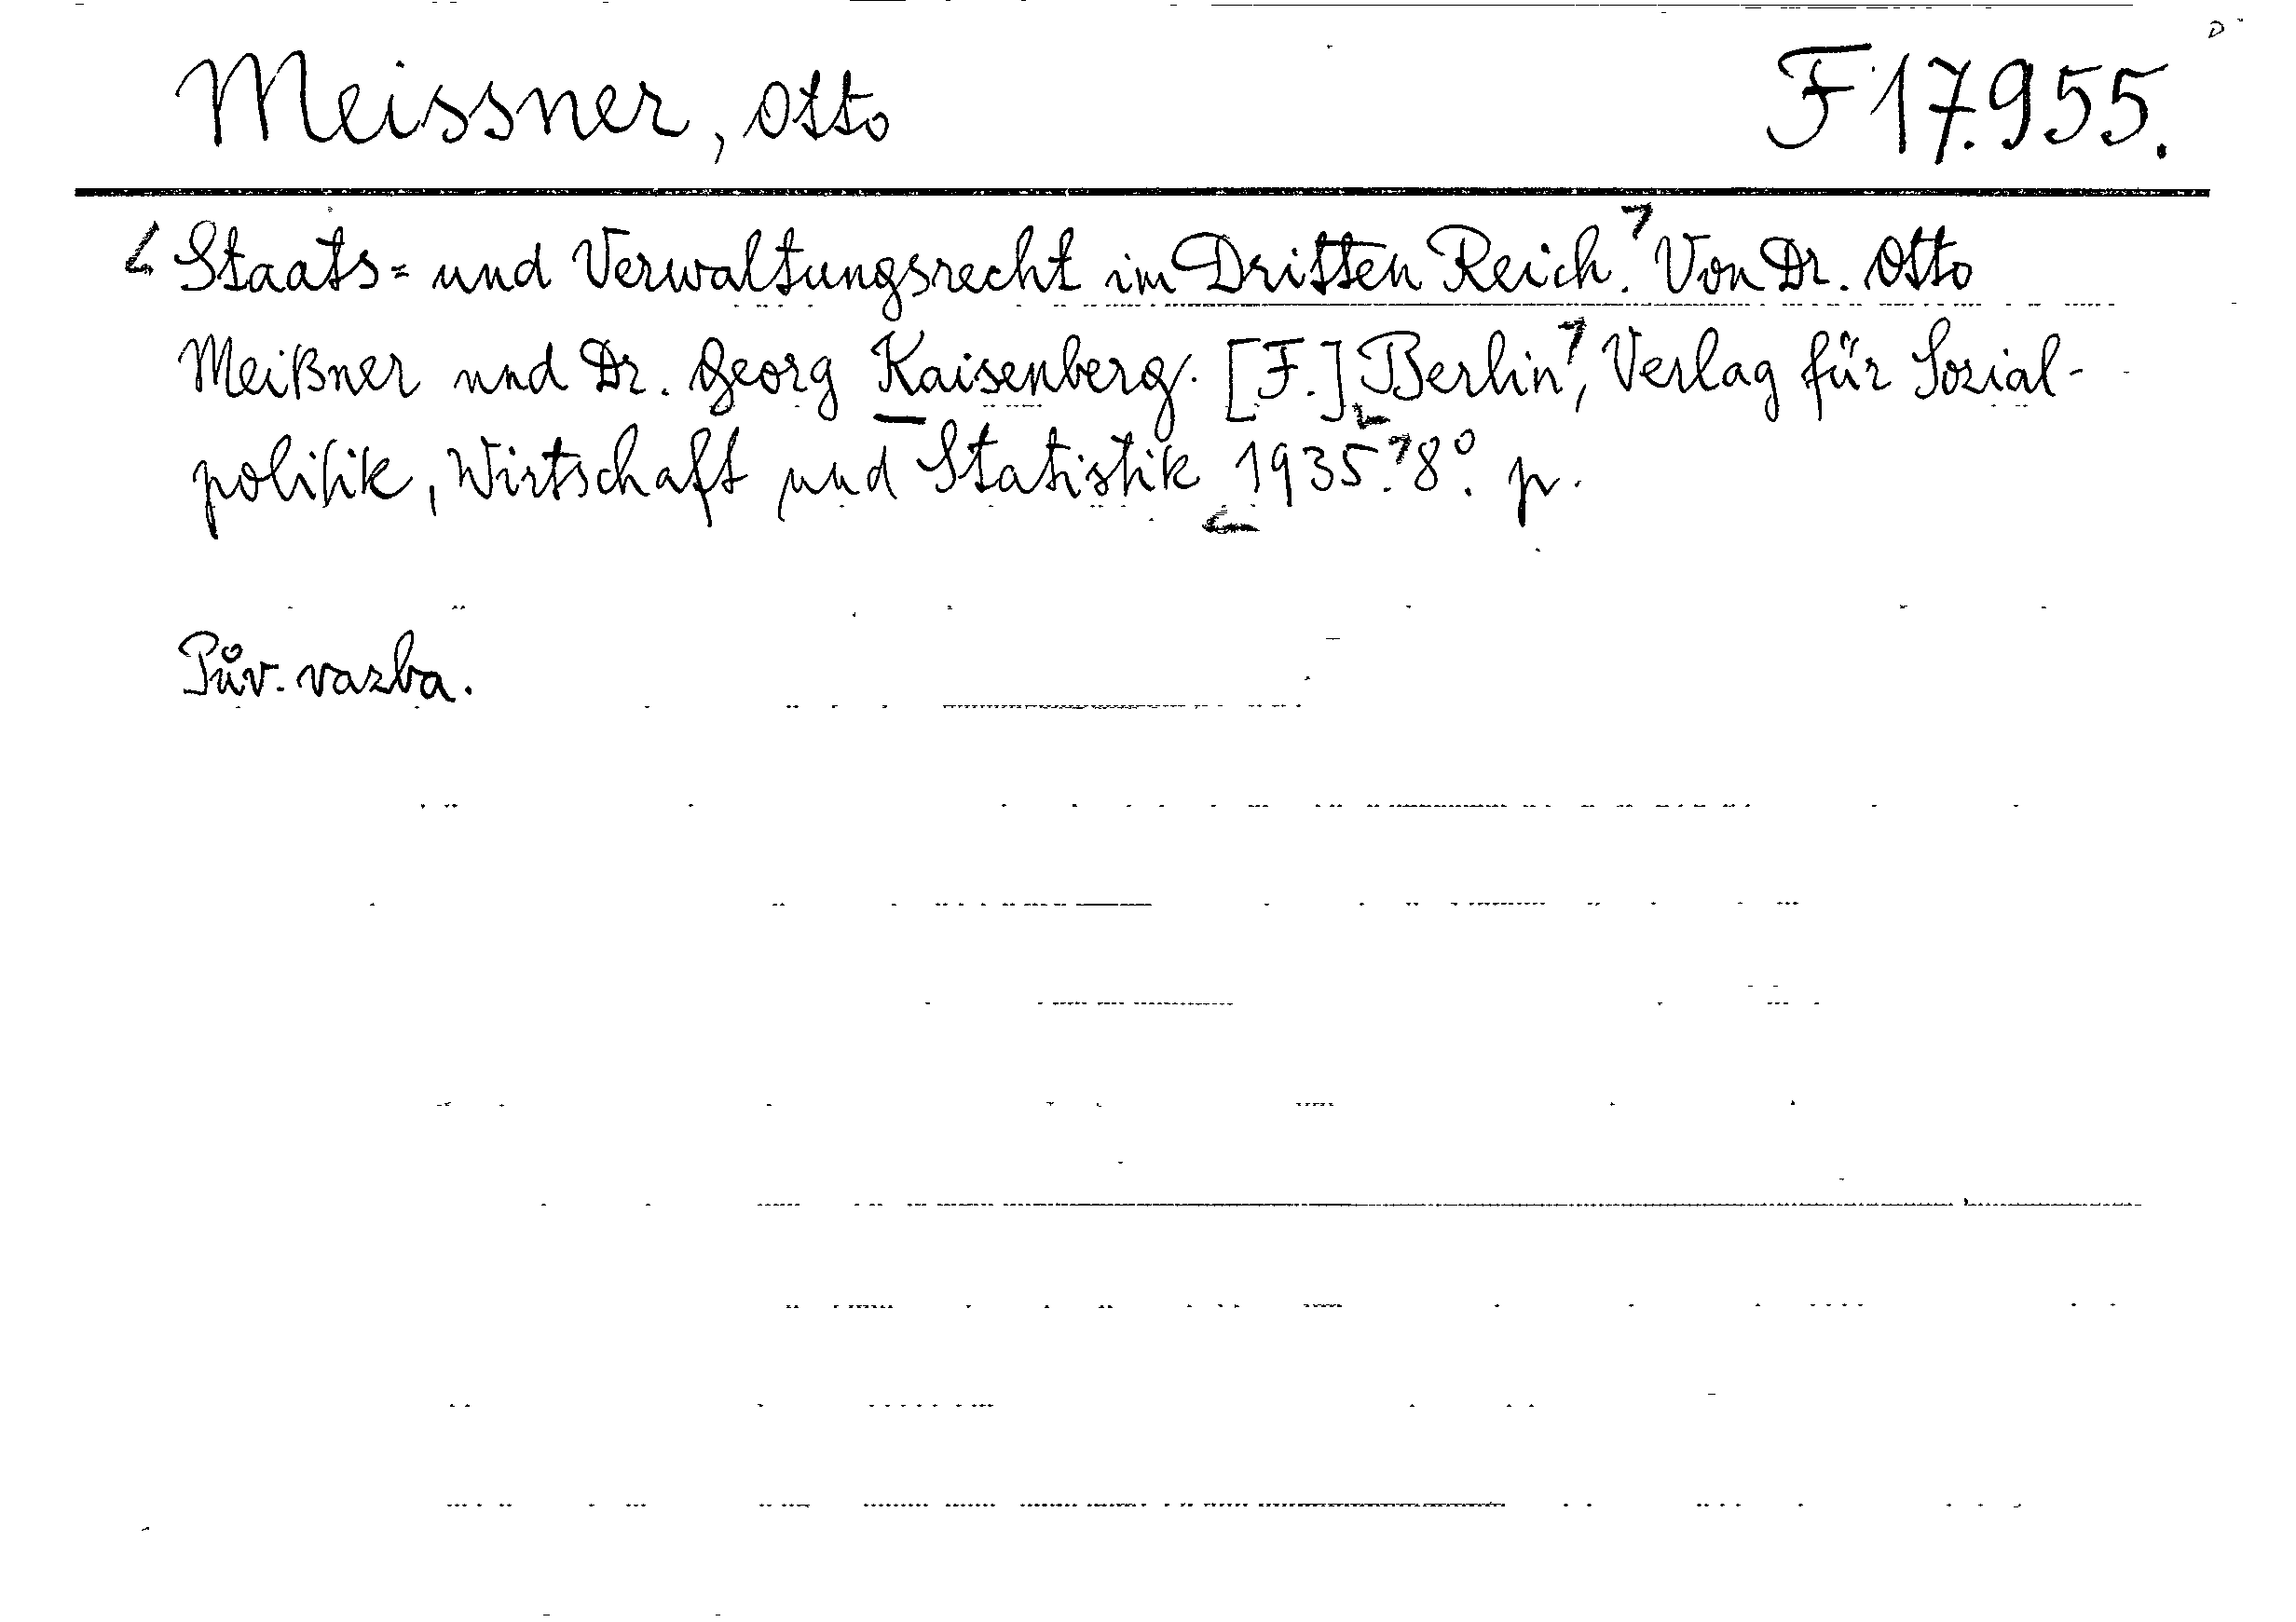 Meissner, Otto F 17.955.
Staats= und Verwaltungsrecht im Dritten Reich. Von Dr. Otto
Meißner und Dr. Georg Kaisenberg. [F.] Berlin, Verlag für Sozial-
politik, Wirtschaft und Statistik 1935. 8°. p.
Pův. vazba.